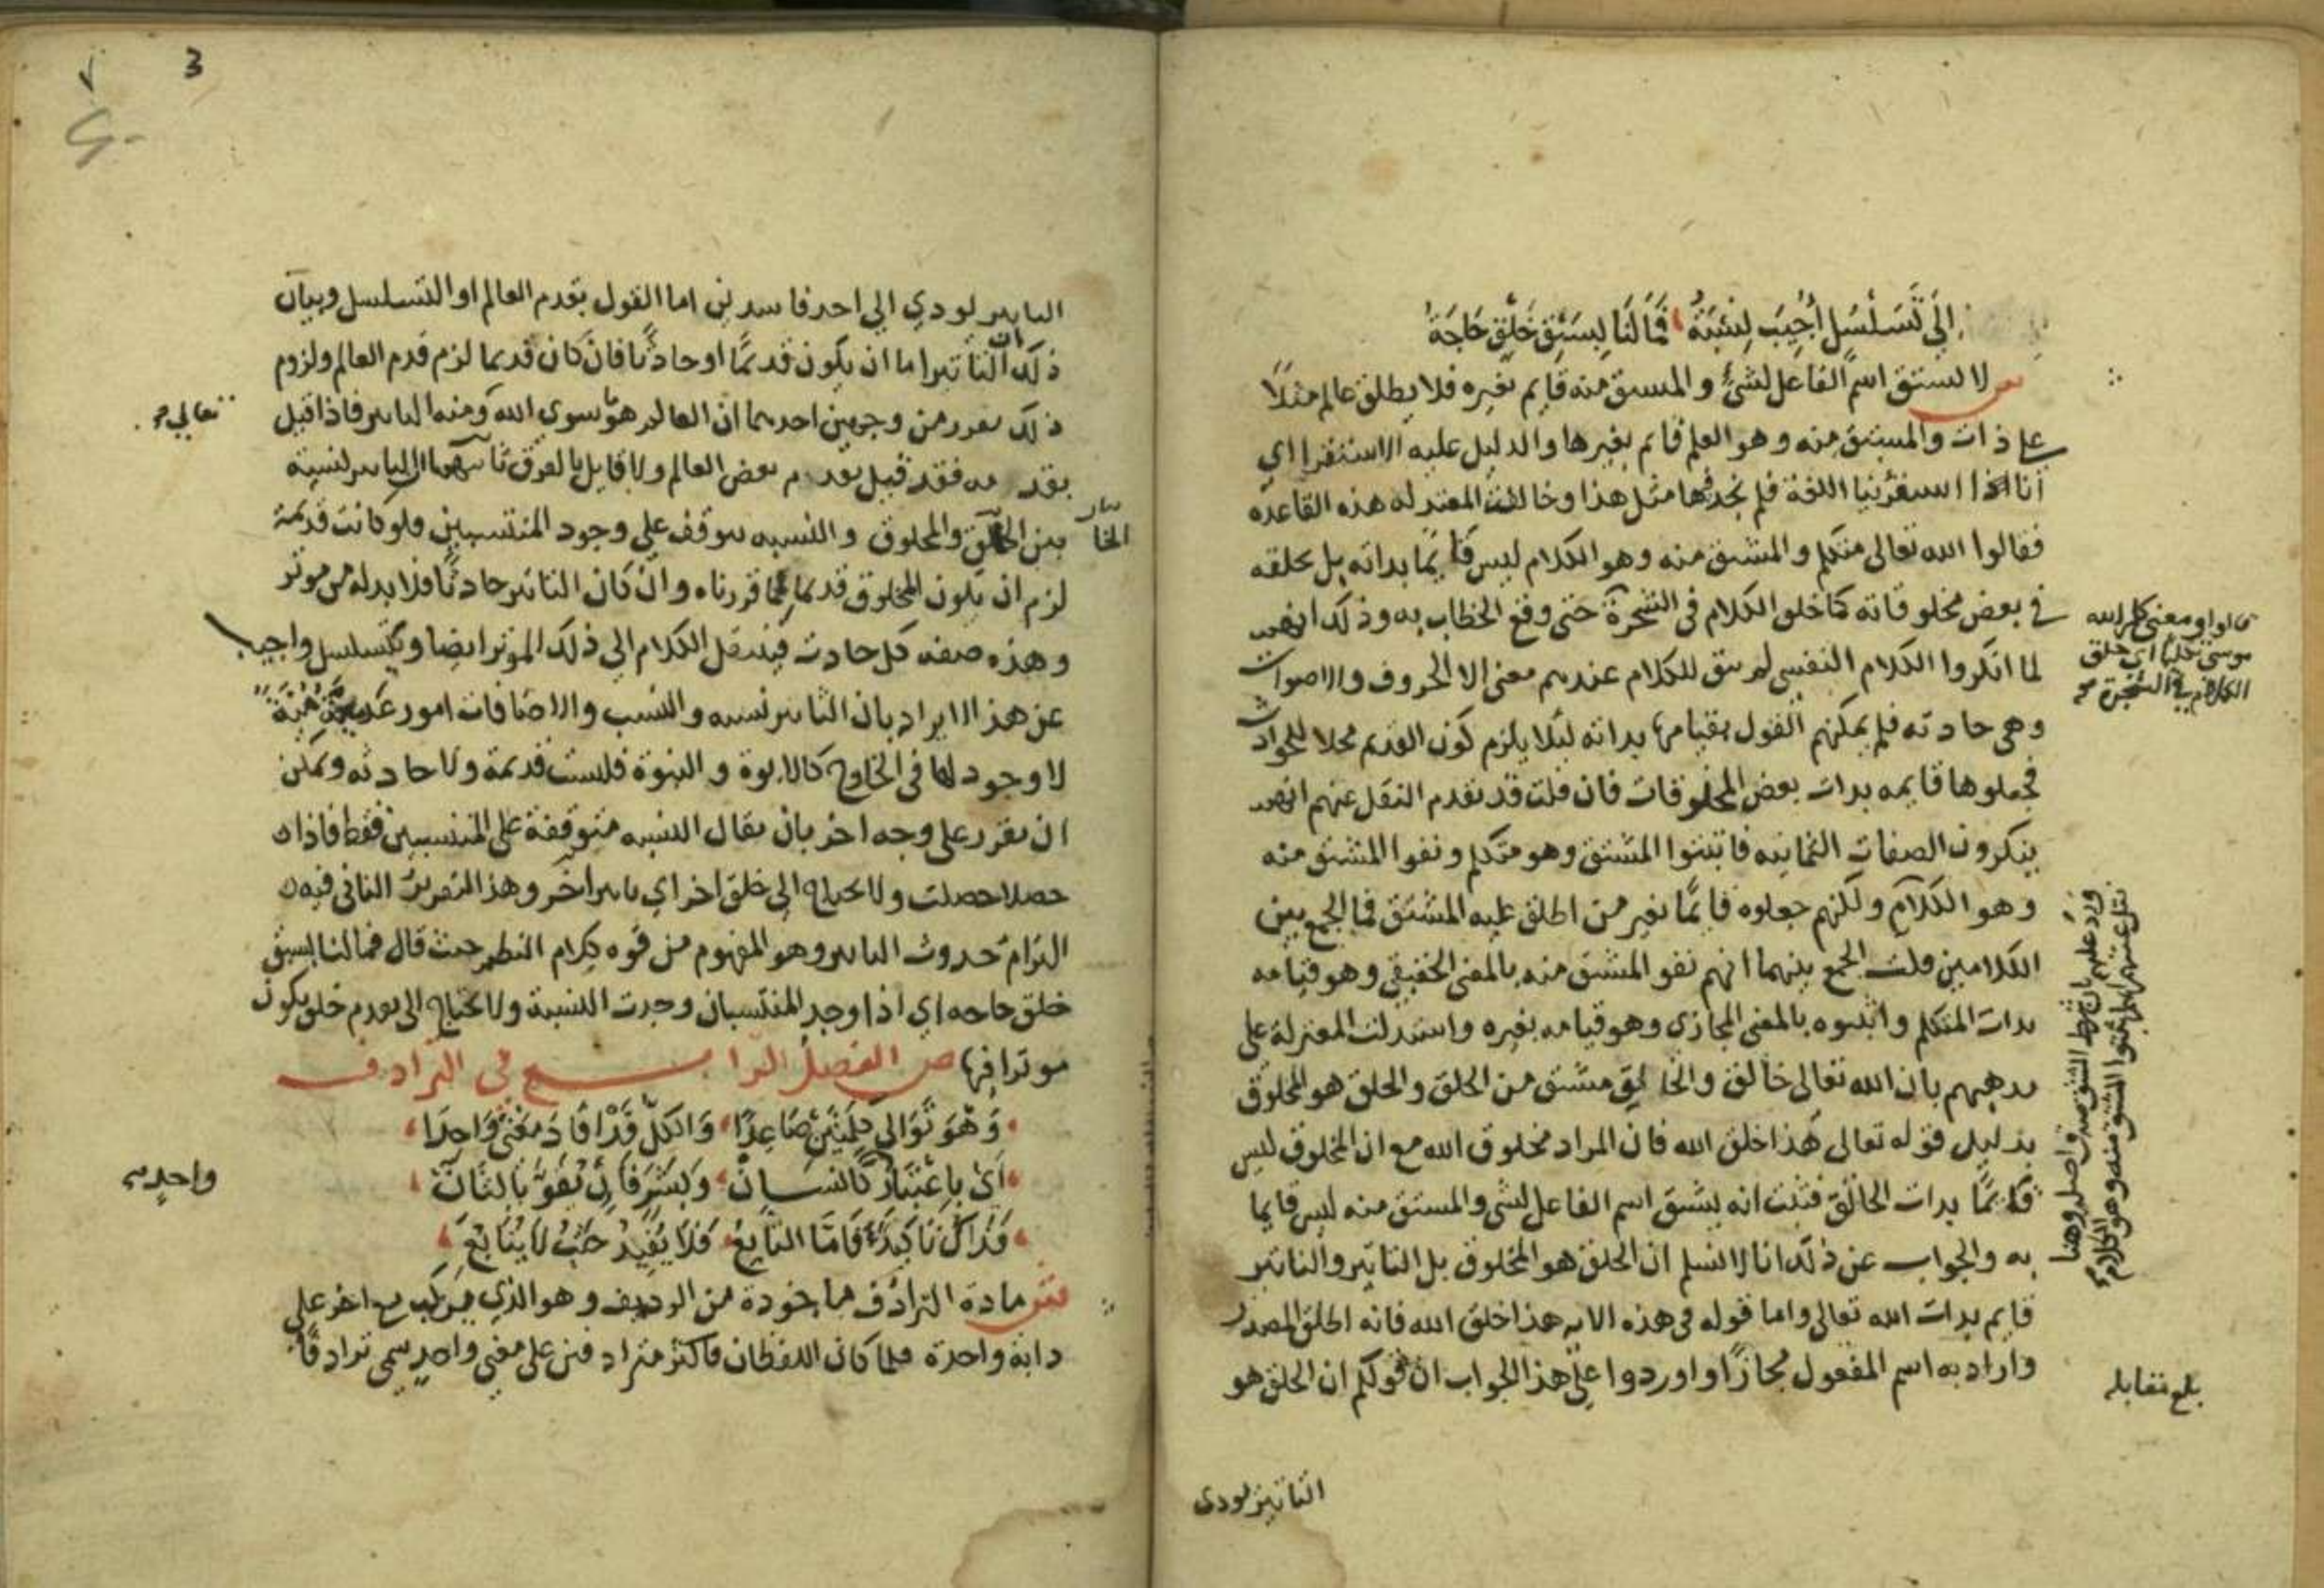 إلى تسلسل أجيب لنسبة فما لنا لسبق خلق حاجة
لا يستق اسم الفاعل لشئ والمستق منه قايم بغيره فلا يطلق عالم مثلا
على ذات والمشتق منه وهو العلم قائم بغيرها والدليل عليه الاستقرا اي
انا اذا استقرينا اللغة فلم نجد فيها مثل هذا وخالفت المعتزله هذه القاعده
فقالوا الله تعالى متكلم والمشتق منه وهو الكلام ليس قايمًا بذاته بل بخلقه
في بعض مخلوقاته كما خلق الكلام في الشجرة حتى وقع الخطاب به وذلك انهم
لما انكروا الكلام النفسي لم يبق للكلام عندهم معنى الا الحروف والاصوات
وهي حادثه فلم يمكنهم القول بقيامها بذاته ليلا يلزم كون القديم محلا للحوادث
فجعلوها قايمه بذات بعض المخلوقات فان قلت قد تقدم النقل عنهم انهم
ينكرون الصفات الثمانيه فاثبتوا المشتق وهو متكلم ونفوا المشتق منه
وهو الكلام ولكنهم جعلوه قايمًا بغير من اطلق عليه المشتق فما الجمع بين
الكلامين قلت الجمع بينهما انهم نفو المشتق منه بالمعنى الحقيقي وهو قيامه
بذات المتكلم واثبتوه بالمعنى المجازى وهو قيامه بغيره واستدلت المعتزلة على
مذهبهم بان الله تعالى خالق والخالق مشتق من الخلق والخلق هو المخلوق
بدليل قوله تعالى هذا خلق الله فان المراد مخلوق الله مع ان المخلوق ليس
قايمًا بذات الخالق فثبت انه يشتق اسم الفاعل لشي والمستق منه ليس قايما
به والجواب عن ذلك انا لا نسلم ان الخلق هو المخلوق بل التاثير والتاثير
قايم بذات الله تعالى واما قوله في هذه الايه هذا خلق الله فانه اطلق المصدر
واراد به اسم المفعول مجازًا واوردوا على هذا الجواب ان قولكم ان الخلق هو
التاثير لودى
ومعنى كلم الله
موسى تكليما اي خلق
الكلام في الشجرة
ورد عليهم بان شرط المشتق صدق اصله وهنا
المشتق منه وهو الكلام
بلغ مقابله
3
التاثير لودي الى احد فاسدين اما القول بقدم العالم او التسلسل وبيان
ذلك ان التاثير اما ان يكون قديمًا او حادثًا فان كان قديما لزم قدم العالم ولزوم
ذلك مقرر من وجهين احدهما ان العالم هو ما سوى الله ومنه التاثير فاذا قيل
بقدمه فقد قيل بقدم بعض العالم ولا قايل بالفرق ثانيهما ان التاثير لنسبة
بين الخالق والمخلوق والنسبه تتوقف على وجود المنتسبين فلو كانت قديمة
لزم ان يكون المخلوق قديما كما قررناه وان كان التاثير حادثًا فلا بد له من موثر
وهذه صفه كل حادث فينتقل الكلام الى ذلك الموثر ايضا ويتسلسل واجيب
عن هذا الايراد بان التاثير نسبه والنسب والاضافات امور عدمية
لا وجود لها في الخارج كالابوة والبنوة فليست قديمة ولا حادثه ويمكن
ان يقرر على وجه اخر بان يقال النسبه متوقفة على المنتسبين فقط فاذا
حصلا حصلت ولا يحتاج الى خلق اخر اي تاثير اخر وهذا التقرير الثاني فيه
التزام حدوث التاثير وهو المفهوم من قوة كلام النظم حيث قال فما لنا لسبق
خلق حاجه اي اذا وجد المنتسبان وجدت النسبة ولا يحتاج الى تقدم خلق يكون
موثرا فيها ص الفصل الرابع في الترادف
وهو توالي كلمتين صاعدًا والكل قد افاد معنى واحدا
اي باعتبار كانسان وبشر فان تفوه بالثان
فذاك تاكيد فاما التابع فلا يفيد حيث لا يتابع
ش مادة الترادف ماخودة من الرديف وهو الذي يركب مع اخر على
دابة واحدة فلما كان اللفظان فاكثر مترادفين على معنى واحد سمى ترادفًا
تعالى
الخالق
واحد